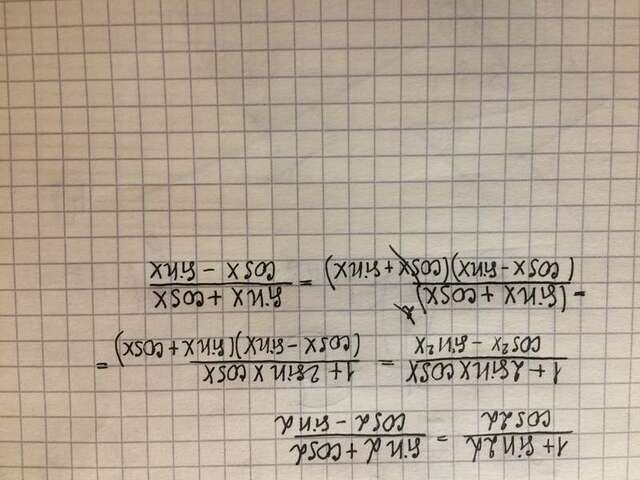 1 + sin2α / cos2α = sinα + cosα / cosα - sinα
1 + 2sinx cosx / cos²x - sin²x = 1 + 2sinx cosx / (cosx - sinx)(sinx + cosx) =
= (sinx + cosx)² / (cosx - sinx)(cosx + sinx) = sinx + cosx / cosx - sinx